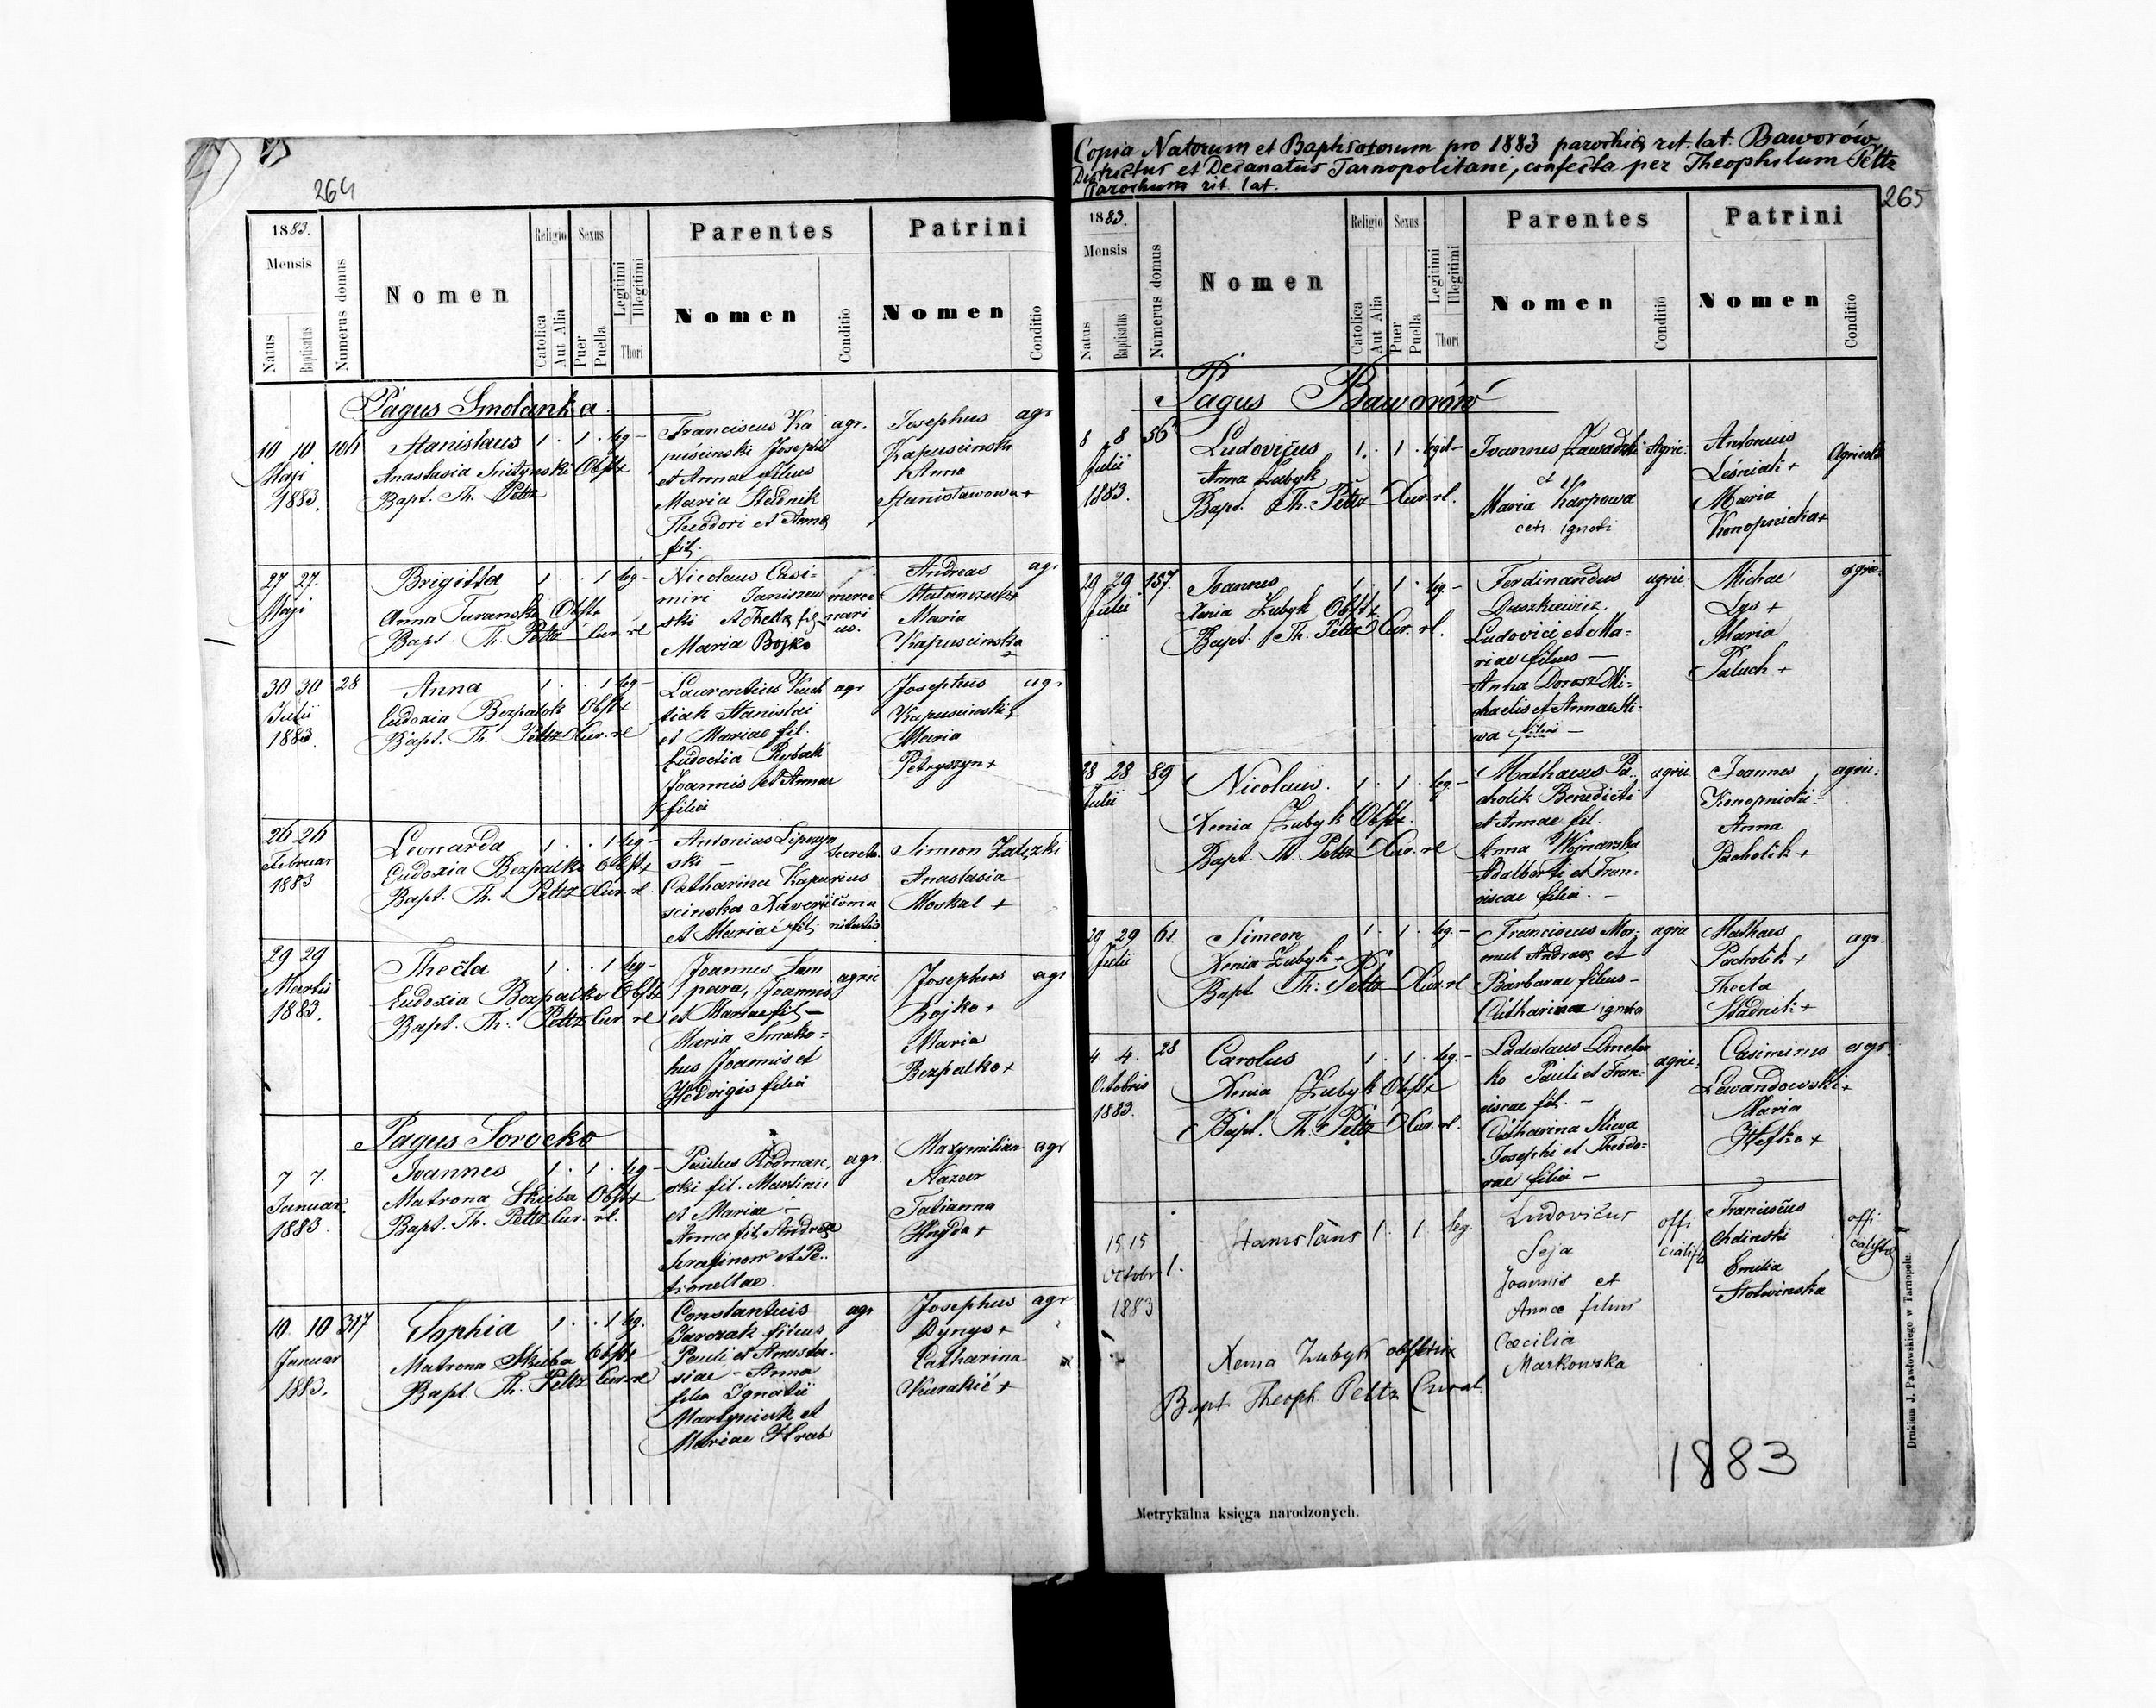 264
1883.
Mensis
Natus
Baptisatus
Numerus domus
Nomen
Religio
Catolica
Aut Alia
Sexus
Puer
Puella
Legitimi
Illegitimi
Thori
Parentes
Nomen
Conditio
Patrini
Nomen
Conditio
Pagus Smolanka
10 10 106 Stanislaus 1 . 1 . leg - Franciscus Ka agr. Josephus agr
Maji Anastasia Obstx puścinski Josephi Kapuscinski
1883. Bapt. Th. Peltz et Annae filius Anna
Maria Stadnik Stanisławowa +
Theodori et Annae
fil.
27 27. Brigitta 1 . . 1 leg - Nicolaus Casi= Andreas agr
Maji Anna Turanska Obstx miri Janiszew
Bapt. Th. Peltz Cur. rl ski Maria
Maria Bojko Kapuscinska
30 30 28 Anna 1 . . 1 leg - Laurentius agr Josephus agr
Julii Eudoxia Bezpalok Obstx tiak Stanislai Kapuscinski +
1883. Bapt. Th. Peltz Cur. rl et Mariae fil. Maria
Eudoctia Rybak Petryszyn +
Joannis et Annae
filia
26 26 Leonarda 1 . . 1 leg - Antonius
Februar Eudoxia Bezpalko Obstx ski - Simeon Załęzki
1883 Bapt. Th. Peltz Cur. rl. Catharina Kapu Anastasia
scinska Xaverii Moskal +
et Mariae fil.
29 29 Thecla 1 . . 1 leg - Joannes agric Josephus agr
Martii Eudoxia Bezpalko Obstx para, Joannis Bojko +
1883. Bapt. Th. Peltz Cur. rl et Mariae fil - Maria
Maria Smako= Bezpalko +
hus Joannis et
Hedvigis filia
Pagus Sorocko
7 7. Joannes 1 . 1 . leg - Paulus Rodman, agr. Maxymilian agr
Januar. Matrona Skiba Obstx ski fil. Martini Nazar
1883. Bapt. Th. Peltz Cur. rl. et Mariae - Tatianna
Anna fil. Andreae Hnyda +
Serafinow et Pe=
tronellae.
10. 10 317 Sophia 1 . . 1 leg. Constantius agr Josephus agr
Januar Matrona Skiba Obstx Jarczak filius Dynys +
1883. Bapt. Th. Peltz Cur. rl Pauli et Anasta= Catharina
siae - Anna Kurakić +
filia Ignatii
Martyniuk et
Mariae Hrab
Copia Natorum et Baptisatorum pro 1883 parochiae rit. lat. Baworów,
Districtus et Decanatus Tarnopolitani, confecta per Theophilum Peltz
Parochum rit. lat.
265
1883.
Mensis
Natus
Baptisatus
Numerus domus
Nomen
Religio
Catolica
Aut Alia
Sexus
Puer
Puella
Legitimi
Illegitimi
Thori
Parentes
Nomen
Conditio
Patrini
Nomen
Conditio
Pagus Baworów
8 8 56 Ludovicus 1. . 1 . legit - Joannes Zawadzki Agric: Antonius Agricola
Julii Anna Zubyk et Lesniak +
1883. Bapt. Th. Peltz Cur. rl. Maria Karpowa Maria
cet. ignoti Konopnicka +
29 29 157. Joannes 1 . 1 . leg - Ferdinandus agric. Michae agric.
Julii Xenia Zubyk Obstx Duszkiewicz Lys +
Bapt. Th. Peltz Cur. rl. Ludovici et Ma= Maria
riae filius - Paluch +
Anna Dorosz Mi=
chaelis et Annae Sli=
wa filia -
28 28 89 Nicolaus. 1 . 1 . leg - Mathaeus Pa= agric Joannes agric.
Julii Xenia Zubyk Obstx. cholik Benedicti Konopnicki -
Bapt. Th. Peltz Cur. rl et Annae fil. Anna
Anna Wojnarska Pacholik +
Adalberti et Fran=
ciscae filia. -
29 29 61. Simeon 1 . 1 . leg - Franciscus Mor= agric Mathaeus agr.
Julii Xenia Zubyk + muł Andreae et Pacholik +
Bapt Th. Peltz Cur. rl Barbarae filius - Thecla
Catharina ignota Stadnik +
4. 4. 28 Carolus 1 . 1 . leg. - Ladislaus agric. Casimirus agr.
Octobris Xenia Zubyk Obstx ko Pauli et Fran= Lewandowski +
1883. Bapt. Th. Peltz Cur. rl. ciscae fil. - Maria
Catharina Sliwa Hefko +
Josephi et Theodo=
rae filia -
15. 15 Stanislaus 1. 1. leg. Ludovicus offi Franciscus offi
Octobr 1. Seja cialista Chdinski cialista
1883 Joannis et Emilia
Annae filius Stotwinska
Xenia Zubyk obstetrix Caecilia
Markowska
Bapt Theoph. Peltz Curat.
1883
Metrykalna księga narodzonych.
Drukiem J. Pawłowskiego w Tarnopolu.